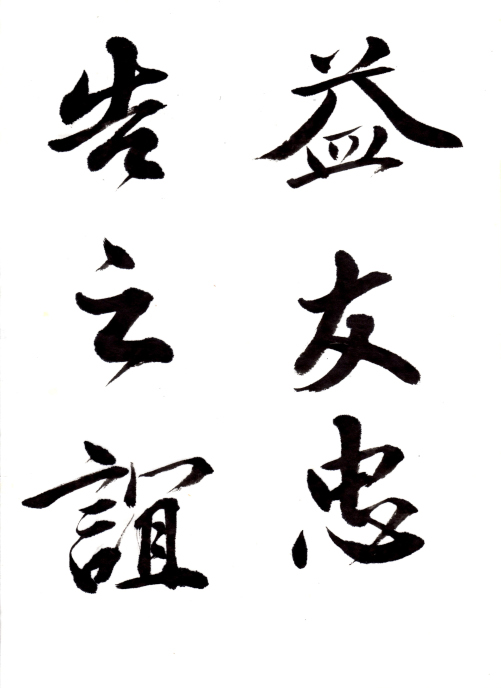 益友忠
告之誼